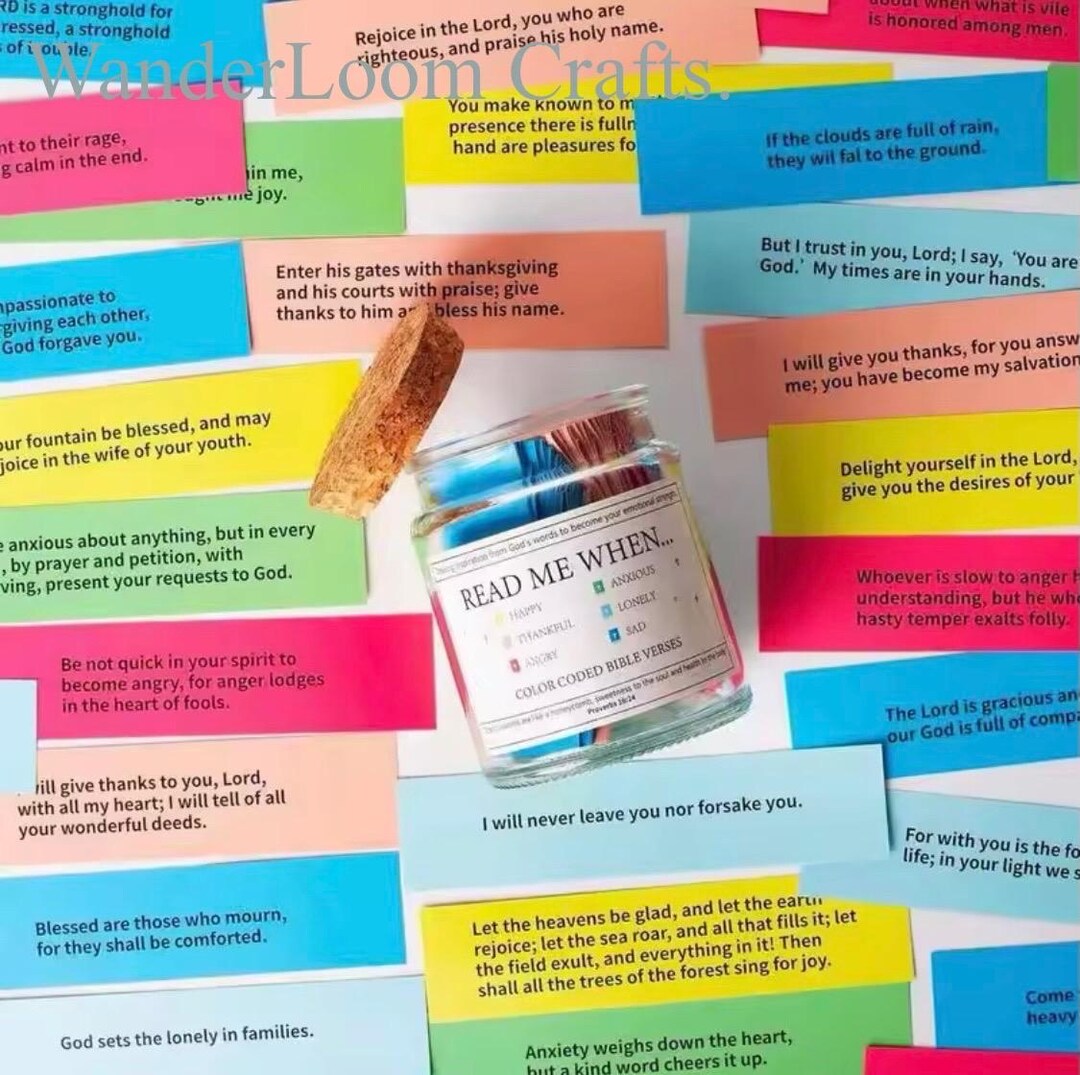 WanderLoom Crafts.
RD is a stronghold for
ressed, a stronghold
of trouble.
Rejoice in the Lord, you who are
righteous, and praise his holy name.
about when what is vile
is honored among men.
nt to their rage,
g calm in the end.
in me,
me joy.
You make known to m
presence there is fulln
hand are pleasures fo
If the clouds are full of rain,
they wil fal to the ground.
But I trust in you, Lord; I say, 'You are
God.' My times are in your hands.
Enter his gates with thanksgiving
and his courts with praise; give
thanks to him and bless his name.
mpassionate to
rgiving each other,
God forgave you.
I will give you thanks, for you answ
me; you have become my salvation
our fountain be blessed, and may
joice in the wife of your youth.
Delight yourself in the Lord,
give you the desires of your
e anxious about anything, but in every
, by prayer and petition, with
ving, present your requests to God.
inspiration from God's words to become your emotional strings
READ ME WHEN...
HAPPY
THANKFUL
ANGRY
ANXIOUS
LONELY
SAD
COLOR-CODED BIBLE VERSES
are like a honeycomb, sweetness to the soul and health to the body
Proverbs 16:24
Whoever is slow to anger h
understanding, but he who
hasty temper exalts folly.
Be not quick in your spirit to
become angry, for anger lodges
in the heart of fools.
The Lord is gracious an
our God is full of compa
will give thanks to you, Lord,
with all my heart; I will tell of all
your wonderful deeds.
I will never leave you nor forsake you.
For with you is the fo
life; in your light we s
Blessed are those who mourn,
for they shall be comforted.
Let the heavens be glad, and let the earth
rejoice; let the sea roar, and all that fills it; let
the field exult, and everything in it! Then
shall all the trees of the forest sing for joy.
Come
heavy
God sets the lonely in families.
Anxiety weighs down the heart,
but a kind word cheers it up.